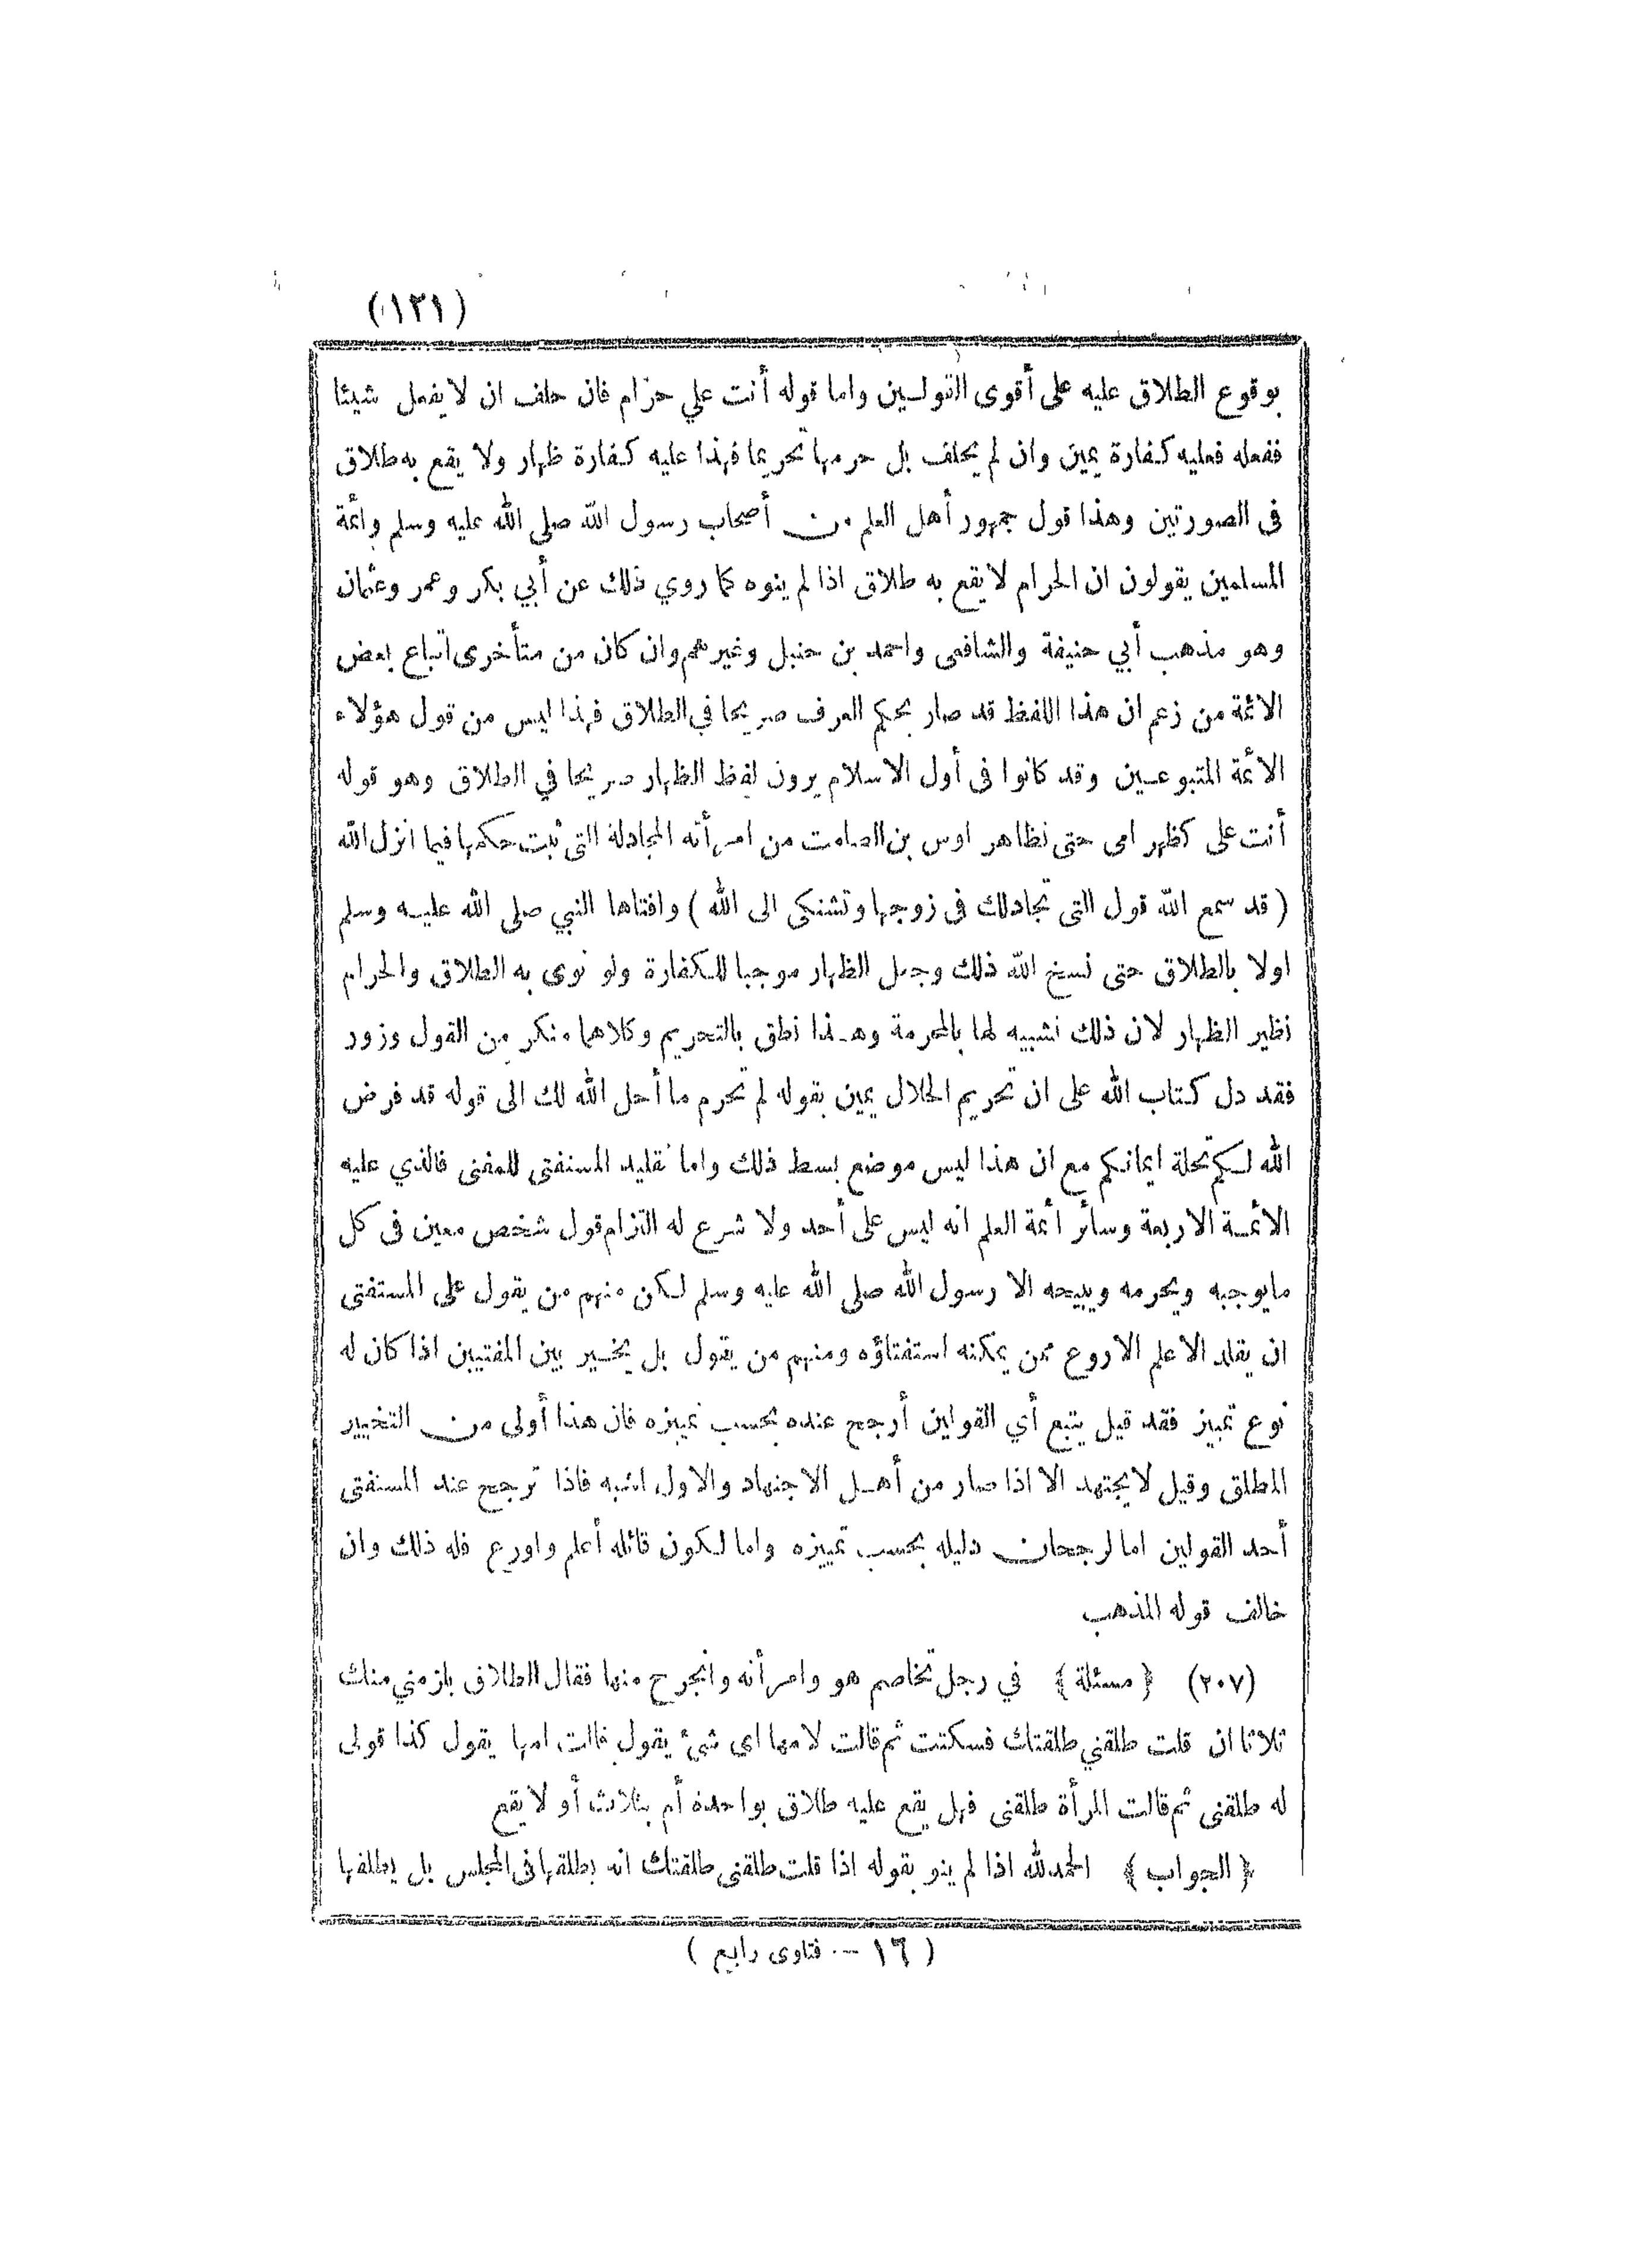 (١٢١)
بوقوع الطلاق عليه على أقوى القولين واما قوله أنت علي حرام فان حلف ان لا يفعل شيئا
ففعله فعليه كفارة يمين وان لم يحلف بل حرمها تحريما فهذا عليه كفارة ظهار ولا يقع به طلاق
فى الصورتين وهذا قول جمهور أهل العلم من أصحاب رسول الله صلى الله عليه وسلم وائمة
المسلمين يقولون ان الحرام لا يقع به طلاق اذا لم ينوه كما روي ذلك عن أبي بكر وعمر وعثمان
وهو مذهب أبي حنيفة والشافعى واحمد بن حنبل وغيرهم وان كان من متأخرى اتباع بعض
الائمة من زعم ان هذا اللفظ قد صار بحكم العرف صريحا في الطلاق فهذا ليس من قول هؤلاء
الائمة المتبوعين وقد كانوا فى أول الاسلام يرون لفظ الظهار صريحا في الطلاق وهو قوله
أنت على كظهر امى حتى تظاهر اوس بن الصامت من امرأته المجادلة التى ثبت حكمها فيما انزل الله
( قد سمع الله قول التى تجادلك فى زوجها وتشتكى الى الله ) وافتاها النبي صلى الله عليه وسلم
اولا بالطلاق حتى نسخ الله ذلك وجعل الظهار موجبا للكفارة ولو نوى به الطلاق والحرام
نظير الظهار لان ذلك تشبيه لها بالمحرمة وهذا نطق بالتحريم وكلاهما منكر من القول وزور
فقد دل كتاب الله على ان تحريم الحلال يمين بقوله لم تحرم ما أحل الله لك الى قوله قد فرض
الله لكم تحلة ايمانكم مع ان هذا ليس موضع بسط ذلك واما تقليد المستفتى للمفتى فالذي عليه
الائمة الاربعة وسائر أئمة العلم انه ليس على أحد ولا شرع له التزام قول شخص معين فى كل
مايوجبه ويحرمه ويبيحه الا رسول الله صلى الله عليه وسلم لكن منهم من يقول على المستفتى
ان يقلد الاعلم الاروع ممن يمكنه استفتاؤه ومنهم من يقول بل يخير بين المفتيين اذا كان له
نوع تمييز فقد قيل يتبع أي القولين أرجح عنده بحسب تمييزه فان هذا أولى من التخيير
المطلق وقيل لا يجتهد الا اذا صار من أهل الاجتهاد والاول اشبه فاذا ترجح عند المستفتى
أحد القولين اما لرجحان دليله بحسب تمييزه واما لكون قائله أعلم واورع فله ذلك وان
خالف قوله المذهب
(٢٠٧) ﴿ مسئلة ﴾ في رجل تخاصم هو وامرأته وانجرح منها فقال الطلاق يلزمني منك
ثلاثا ان قلت طلقني طلقتك فسكتت ثم قالت لامها اى شيء يقول قالت امها يقول كذا قولى
له طلقنى ثم قالت المرأة طلقنى فهل يقع عليه طلاق بواحدة أم بثلاث أو لا يقع
﴿ الجواب ﴾ الحمد لله اذا لم ينو بقوله اذا قلت طلقنى طلقتك انه يطلقها فى المجلس بل يطلقها
( ١٦ – فتاوى رابع )